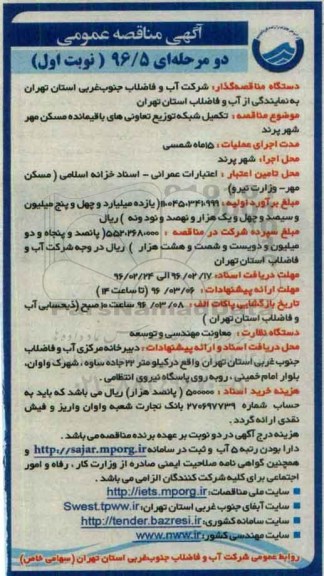 آگهی مناقصه عمومی
دو مرحله‌ای ۹۶/۵ ( نوبت اول)
دستگاه مناقصه‌گذار: شرکت آب و فاضلاب جنوب‌غربی استان تهران
به نمایندگی از آب و فاضلاب استان تهران
موضوع مناقصه : تکمیل شبکه توزیع تعاونی های باقیمانده مسکن مهر
شهر پرند
مدت اجرای عملیات : ۱۵ماه شمسی
محل اجرا: شهر پرند
محل تامین اعتبار : اعتبارات عمرانی - اسناد خزانه اسلامی ( مسکن
مهر- وزارت نیرو)
مبلغ برآورد اولیه: ۱۱۰۴۵۰۳۴۱۰۹۹۹( یازده میلیارد و چهل و پنج میلیون
و سیصد و چهل و یک هزار و نهصد و نود ونه ) ریال
مبلغ سپرده شرکت در مناقصه : ۵۵۲۰۲۶۸۰۰۰۰( پانصد و پنجاه و دو
میلیون و دویست و شصت و هشت هزار ) ریال در وجه شرکت آب و
فاضلاب استان تهران
مهلت دریافت اسناد: ۹۶/۰۲/۱۷ الی ۹۶/۰۲/۲۴
مهلت ارائه پیشنهادات: ۹۶/۰۳/۰۶ (تا ساعت ۱۴ )
تاریخ بازگشایی پاکات الف: ۹۶/۰۳/۰۸ ساعت۱۰ صبح (ذیحسابی آب
و فاضلاب استان تهران )
دستگاه نظارت : معاونت مهندسی و توسعه
محل دریافت اسناد و ارائه پیشنهادات: دبیرخانه مرکزی آب و فاضلاب
جنوب غربی استان تهران واقع در کیلومتر ۲۲ جاده ساوه، شهرک واوان،
بلوار امام خمینی ، روبه روی پاسگاه نیروی انتظامی .
هزینه خرید اسناد : ۵۰۰۰۰۰ ( پانصد هزار) ریال می باشد که باید به
حساب شماره ۲۷۰۶۹۷۷۳۹ بانک تجارت شعبه واوان واریز و فیش
نقدی ارائه گردد .
هزینه درج آگهی در دو نوبت بر عهده برنده مناقصه می باشد .
دارا بودن رتبه ۵ آب و ثبت در سامانه http://sajar.mporg.ir و
همچنین گواهی نامه صلاحیت ایمنی صادره از وزارت کار ، رفاه و امور
اجتماعی برای کلیه شرکت کنندگان الزامی می باشد .
سایت ملی مناقصات: http://iets.mporg.ir
سایت آبفای جنوب غربی استان تهران: Swest.tpww.ir
سایت سامانه کشوری: http://tender.bazresi.ir
سایت مهندسی کشور: www.nww.ir
روابط عمومی شرکت آب و فاضلاب جنوب‌غربی استان تهران (سهامی خاص)